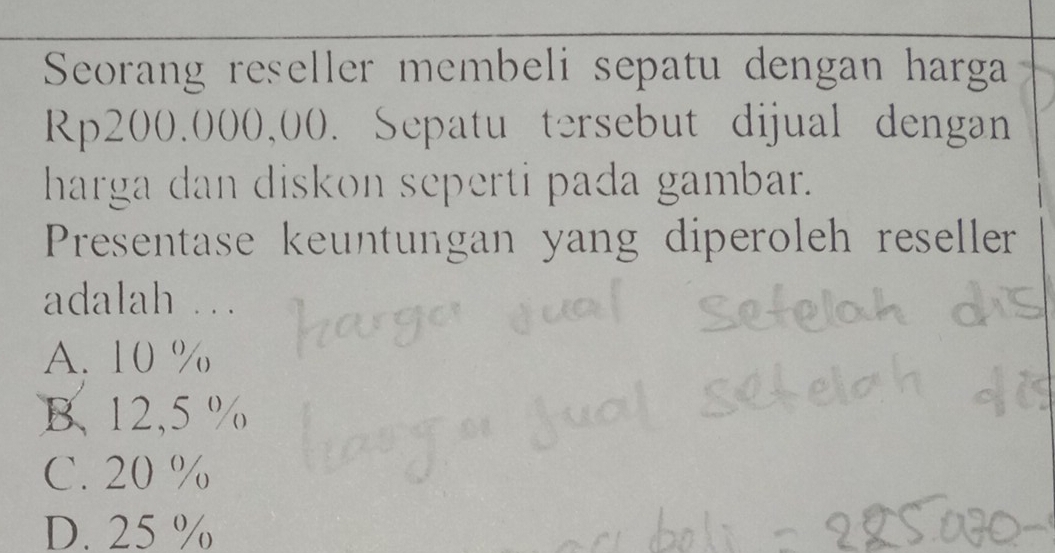 Seorang reseller membeli sepatu dengan harga
Rp200.000,00. Sepatu tersebut dijual dengan
harga dan diskon seperti pada gambar.
Presentase keuntungan yang diperoleh reseller
adalah ...
harga jual setelah dis
A. 10 %
harga jual setelah dis
B. 12,5 %
C. 20 %
D. 25 %
beli =